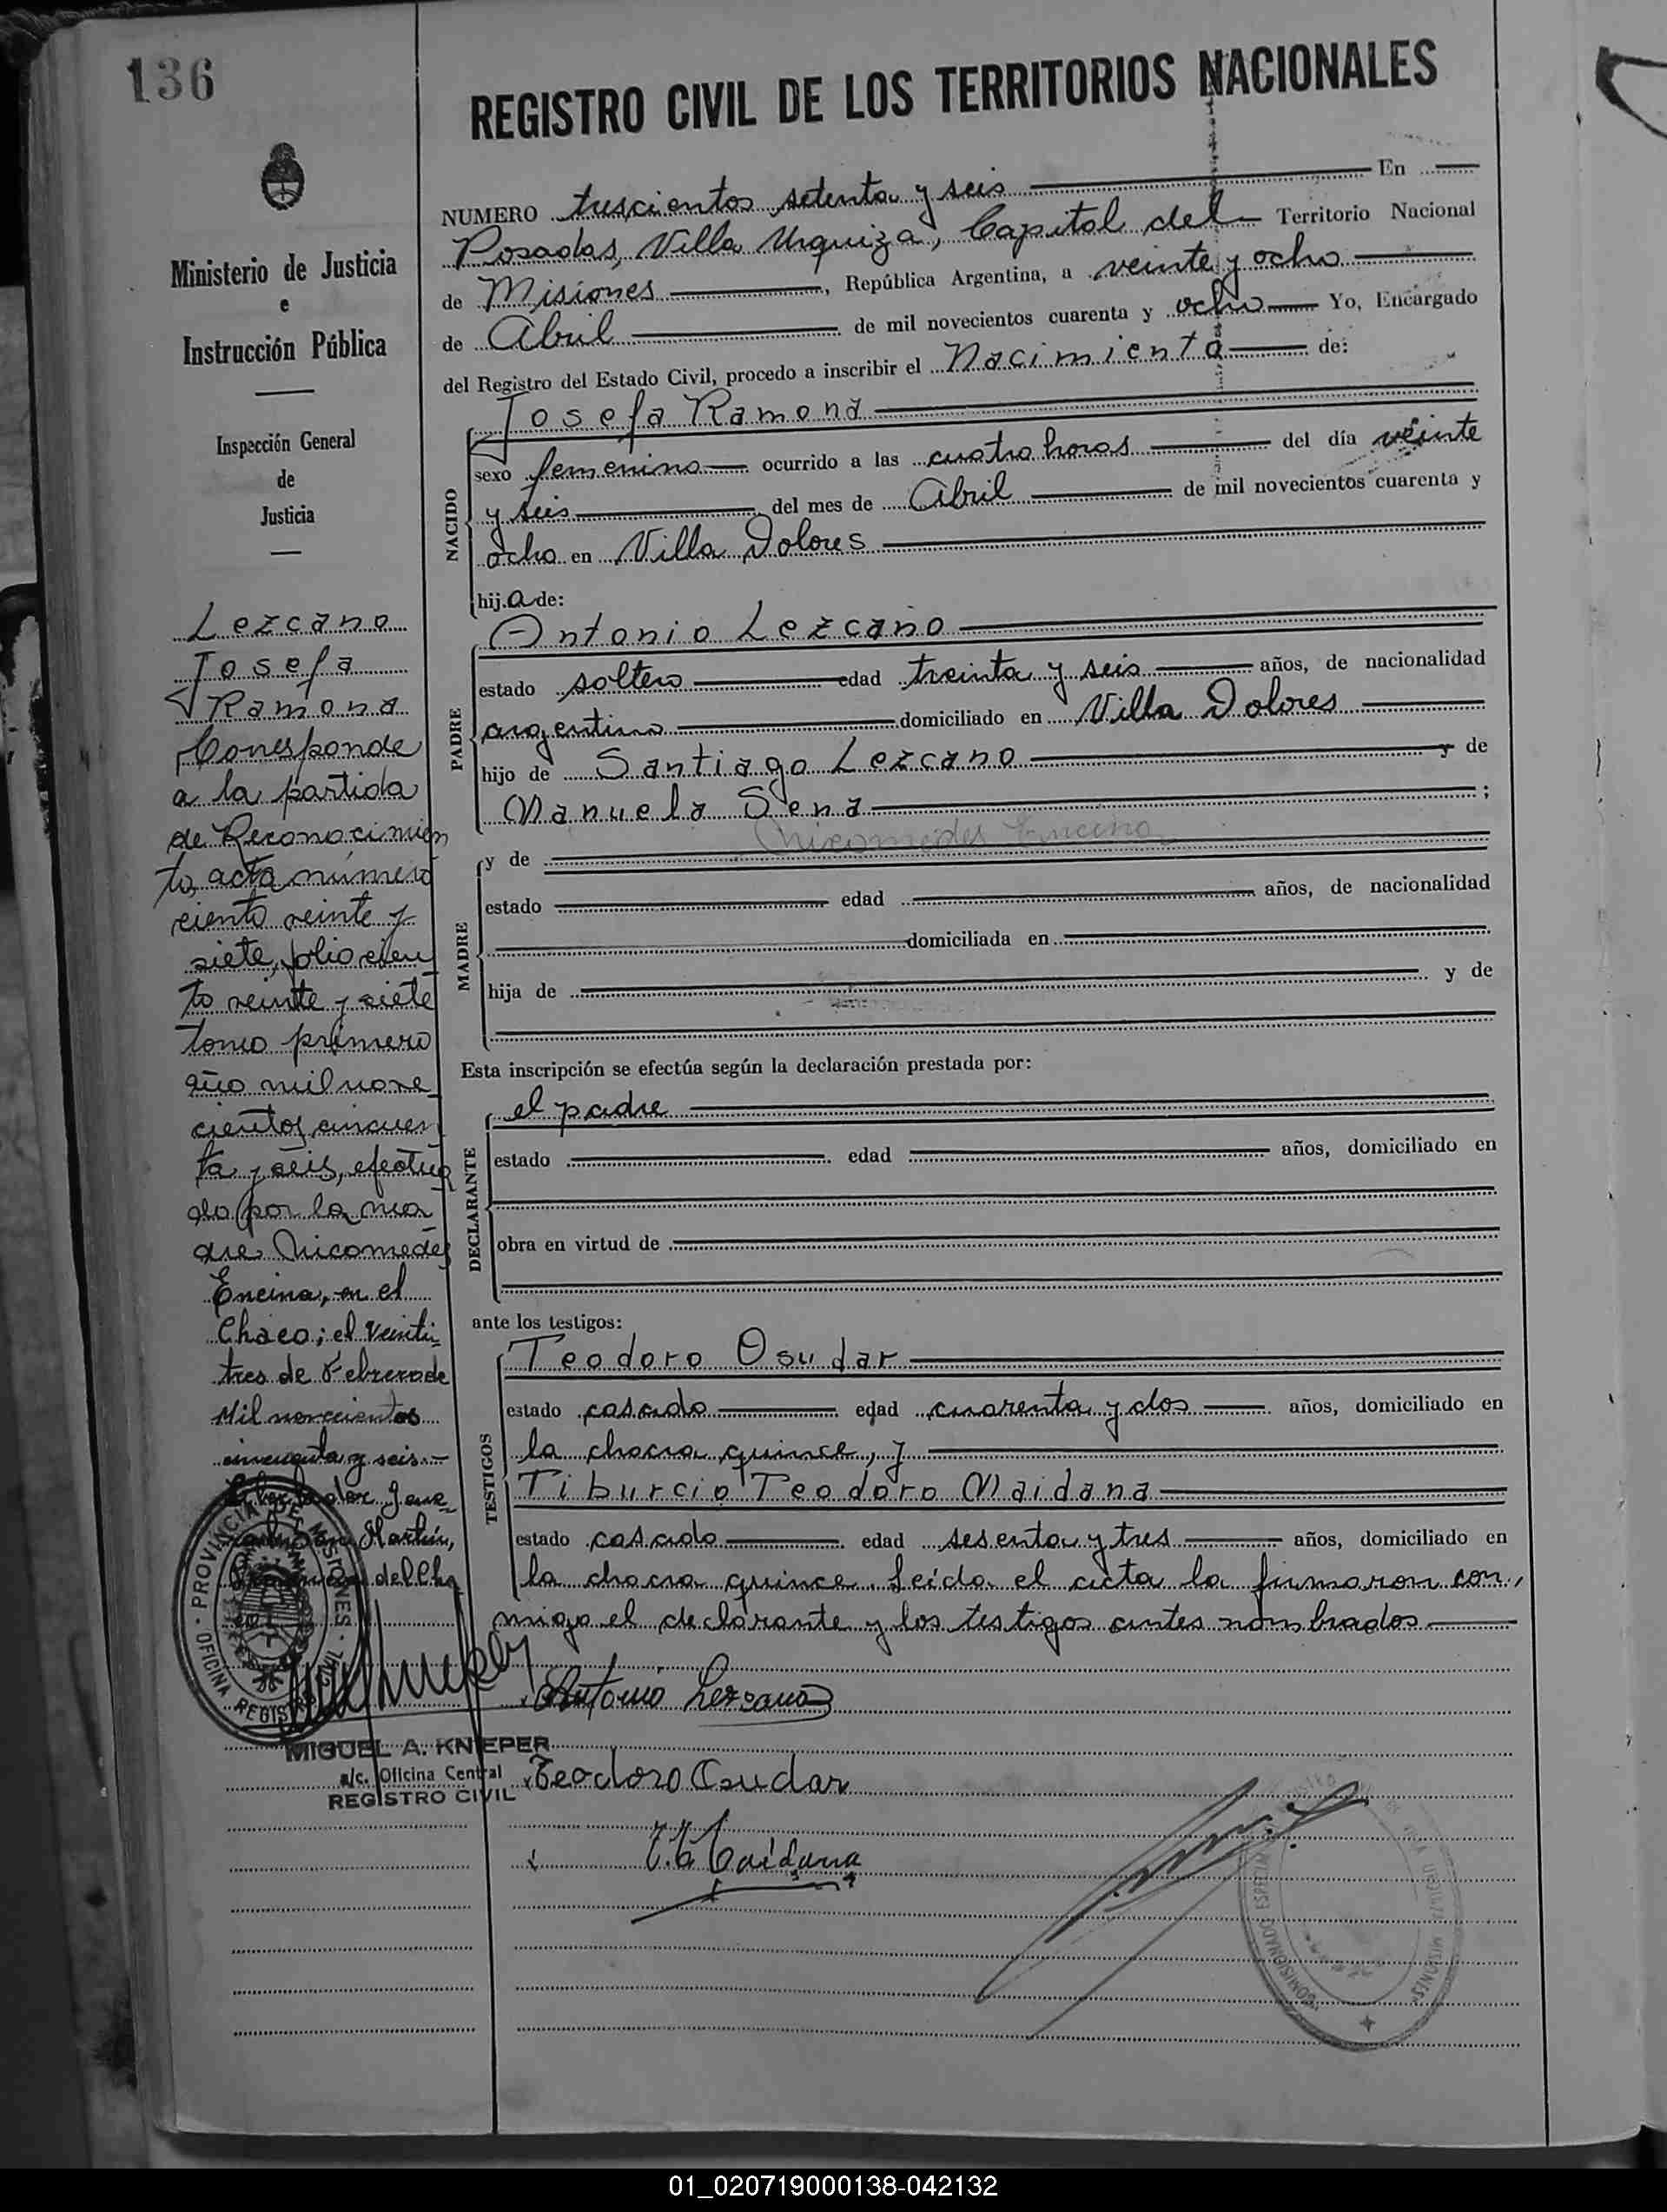 136
REGISTRO CIVIL DE LOS TERRITORIOS NACIONALES
Ministerio de Justicia
e
Instrucción Pública
Inspección General
de
Justicia
NUMERO trescientos setenta y seis En
Posadas, Villa Urquiza, Capital del Territorio Nacional
de Misiones, República Argentina, a veinte y ocho
de Abril de mil novecientos cuarenta y ocho Yo, Encargado
del Registro del Estado Civil, procedo a inscribir el Nacimiento de:
Josefa Ramona
NACIDO
sexo femenino ocurrido a las cuatro horas del día veinte
y seis del mes de Abril de mil novecientos cuarenta y
ocho en Villa Dolores
hija de:
Antonio Lezcano
PADRE
estado soltero edad treinta y seis años, de nacionalidad
argentino domiciliado en Villa Dolores
hijo de Santiago Lezcano y de
Manuela Sena ;
Nicomedes Encina
y de
MADRE
estado edad años, de nacionalidad
domiciliada en
hija de y de
Esta inscripción se efectúa según la declaración prestada por:
el padre
DECLARANTE
estado edad años, domiciliado en
obra en virtud de
ante los testigos:
Teodoro Osudar
TESTIGOS
estado casado edad cuarenta y dos años, domiciliado en
la chacra quince, y
Tiburcio Teodoro Maidana
estado casado edad sesenta y tres años, domiciliado en
la chacra quince. Leída el acta la firmaron con,
migo el declarante y los testigos antes nombrados
Antonio Lezcano
Teodoro Osudar
T. T. Maidana
Lezcano
Josefa
Ramona
Corresponde
a la partida
de Reconocimien
to, acta número
ciento veinte y
siete, folio cien
to veinte y siete
tomo primero
año mil nove
cientos cincuen
ta y seis, efectua
do por la ma
dre Nicomedes
Encina, en el
Chaco; el veinti
tres de Febrero de
Mil novecientos
cincuenta y seis.-
Libertador Gene
ral San Martín,
Provincia del Cha
co
PROVINCIA DE MISIONES
OFICINA REGISTRO
MIGUEL A. KNIEPER
a/c. Oficina Central
REGISTRO CIVIL
COMISIONADO ESPECIAL
MISIONES
01_020719000138-042132